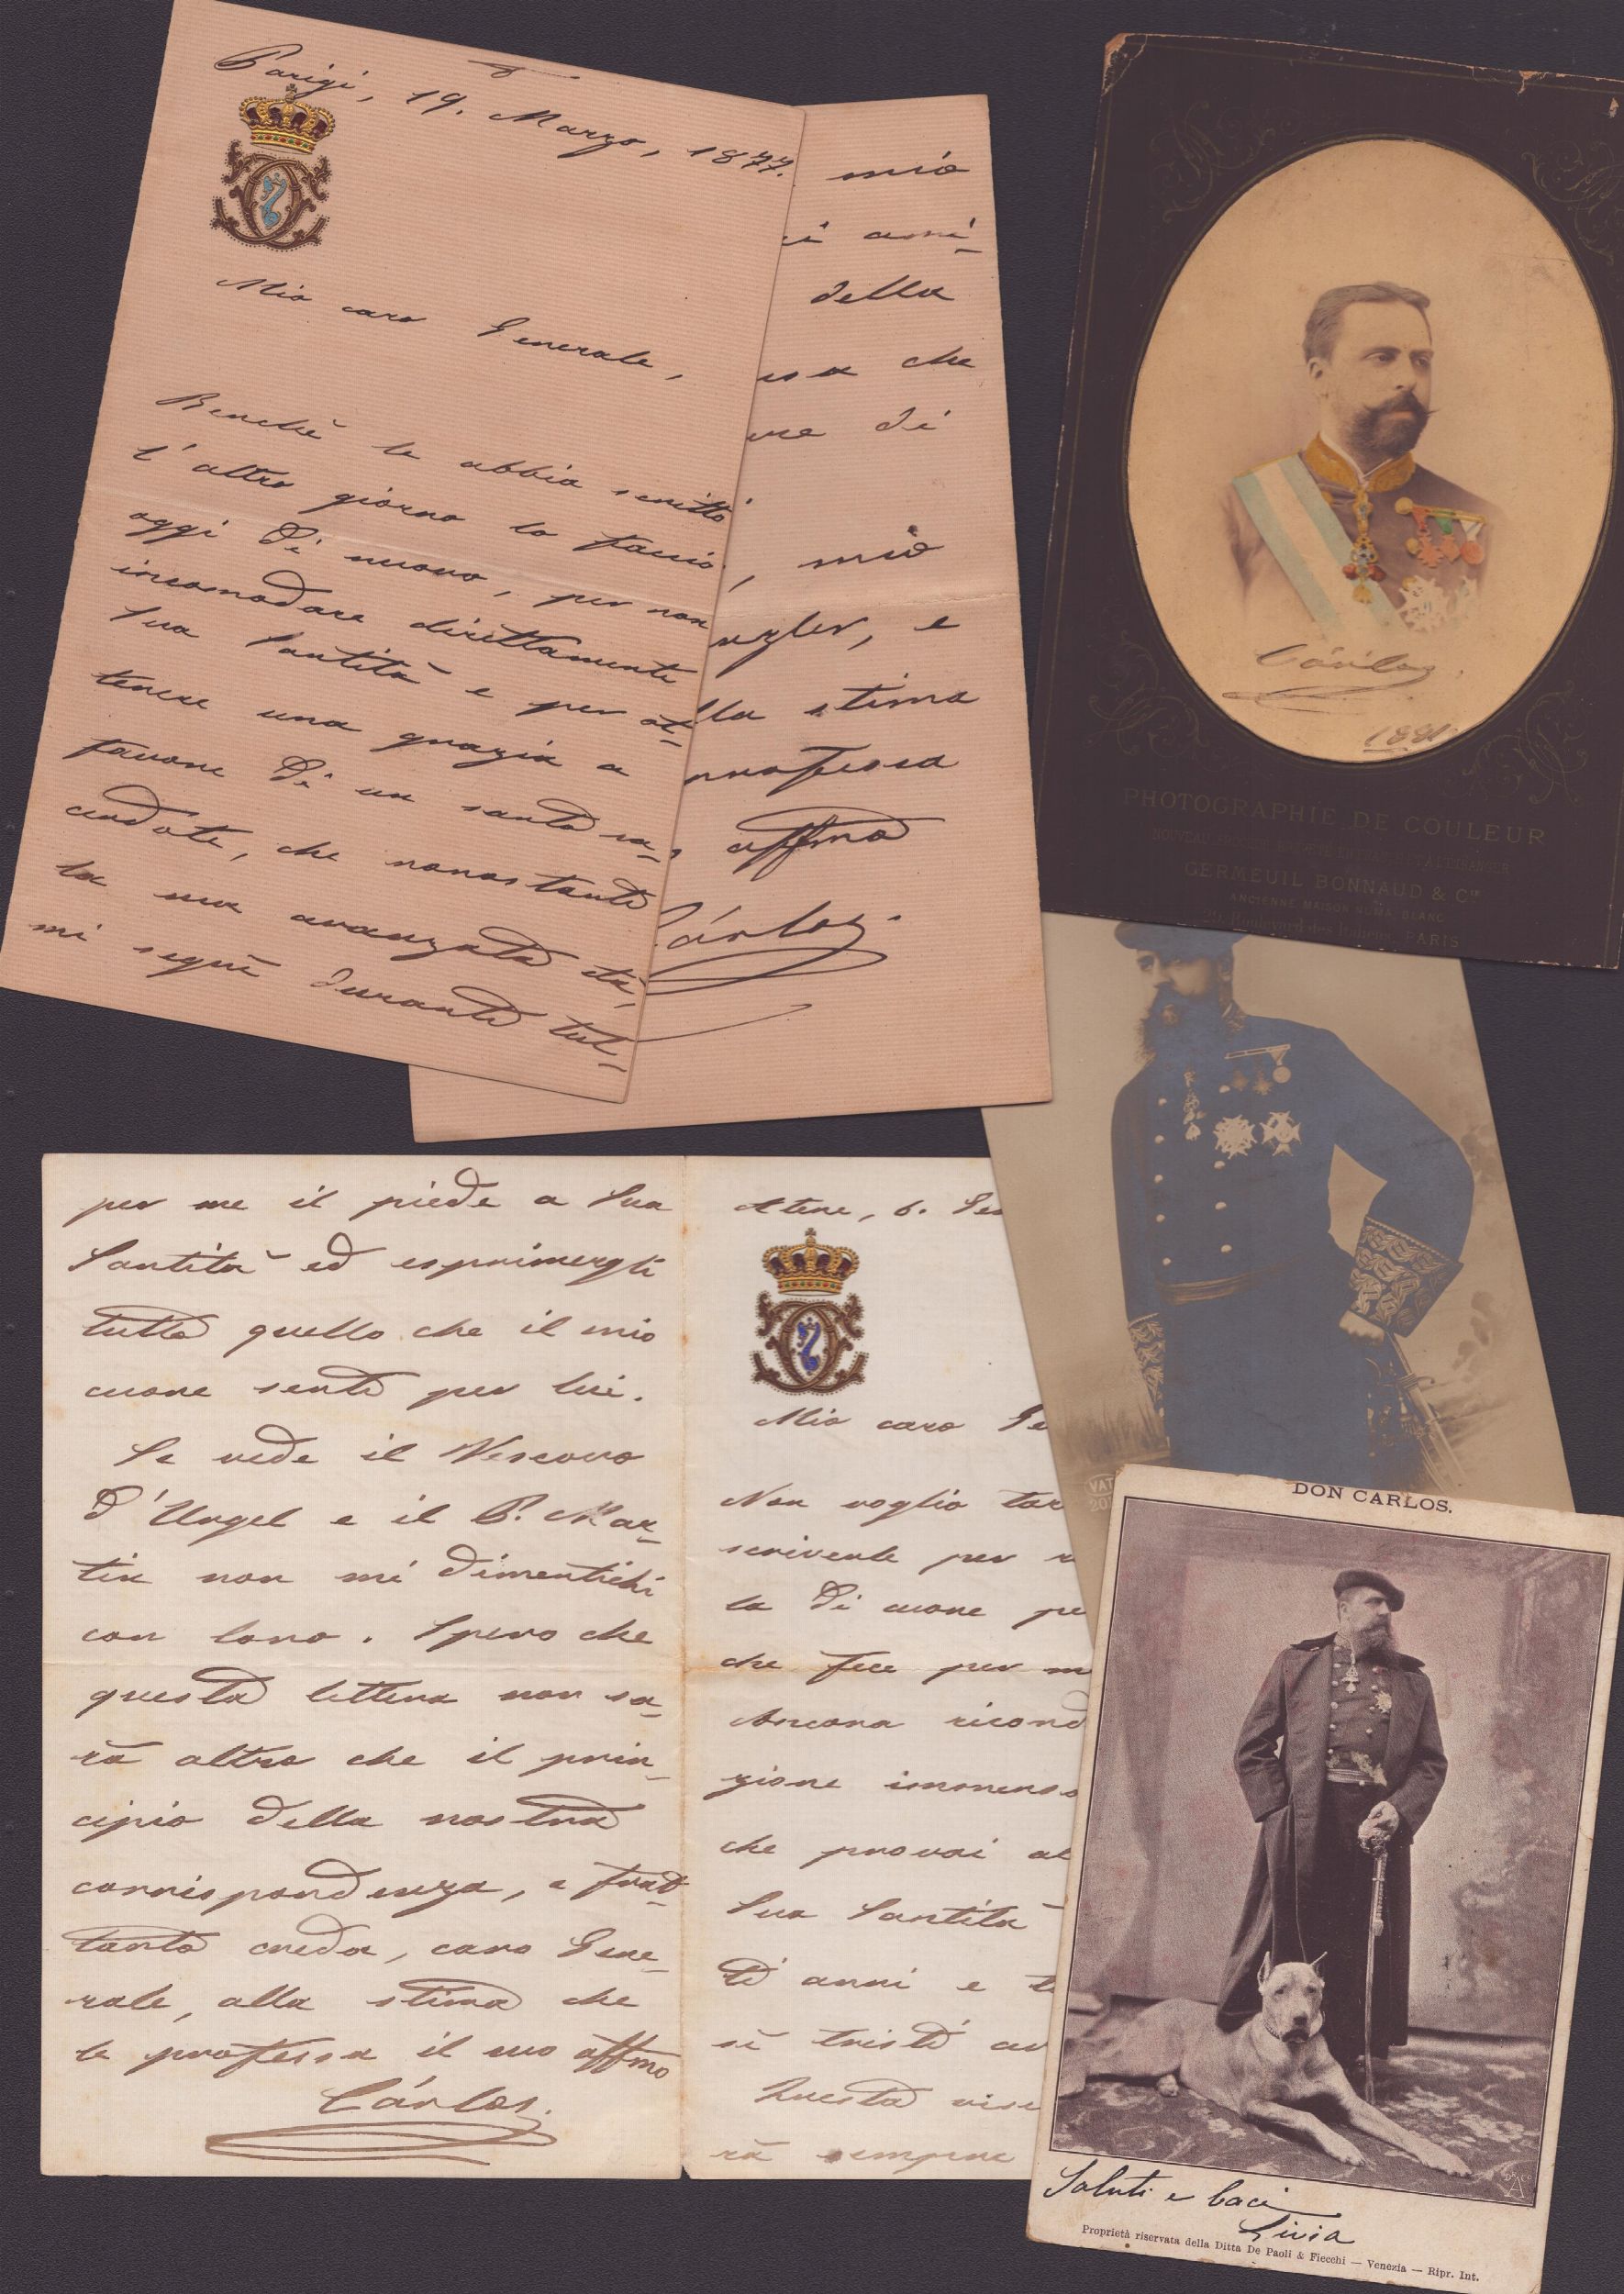 Parigi, 19. Marzo, 1877.
Mio caro Generale,
Benchè le abbia scritto
l'altro giorno lo faccio
oggi di nuovo, per non
incomodare direttamente
Sua Santità e per ot-
tenere una grazia a
favore di un santo sa-
cerdote, che nonostante
la sua avanzata età,
mi seguì durante tut-
mio
i ami-
della
sa che
re di
, mio
nzler, e
lla stima
professa
affmo
Cárlos.
Cárlos
1881
PHOTOGRAPHIE DE COULEUR
GERMEUIL BONNAUD & Cie
ANCIENNE MAISON NUMA BLANC
Boulevard des Italiens, PARIS
per me il piede a Sua
Santità ed esprimergli
tutto quello che il mio
cuore sente per lui.
Se vede il Vescovo
d'Urgel e il P. Mar-
tin non mi dimentichi
con loro. Spero che
questa lettera non sa-
rà altro che il prin-
cipio della nostra
corrispondenza, e frat-
tanto creda, caro Gene-
rale, alla stima che
le professa il suo affmo
Cárlos.
Atene, 6.
Mio caro Ge
Non voglio tar
scriverle per r
la di cuore pe
che fece per m
Ancora ricord
zione immensa
che provai al
Sua Santità
ti anni e t
sì tristi av
Questa visi
rà sempre
VAT
20
DON CARLOS.
Saluti e baci
Livia
Proprietà riservata della Ditta De Paoli & Fiecchi — Venezia — Ripr. Int.